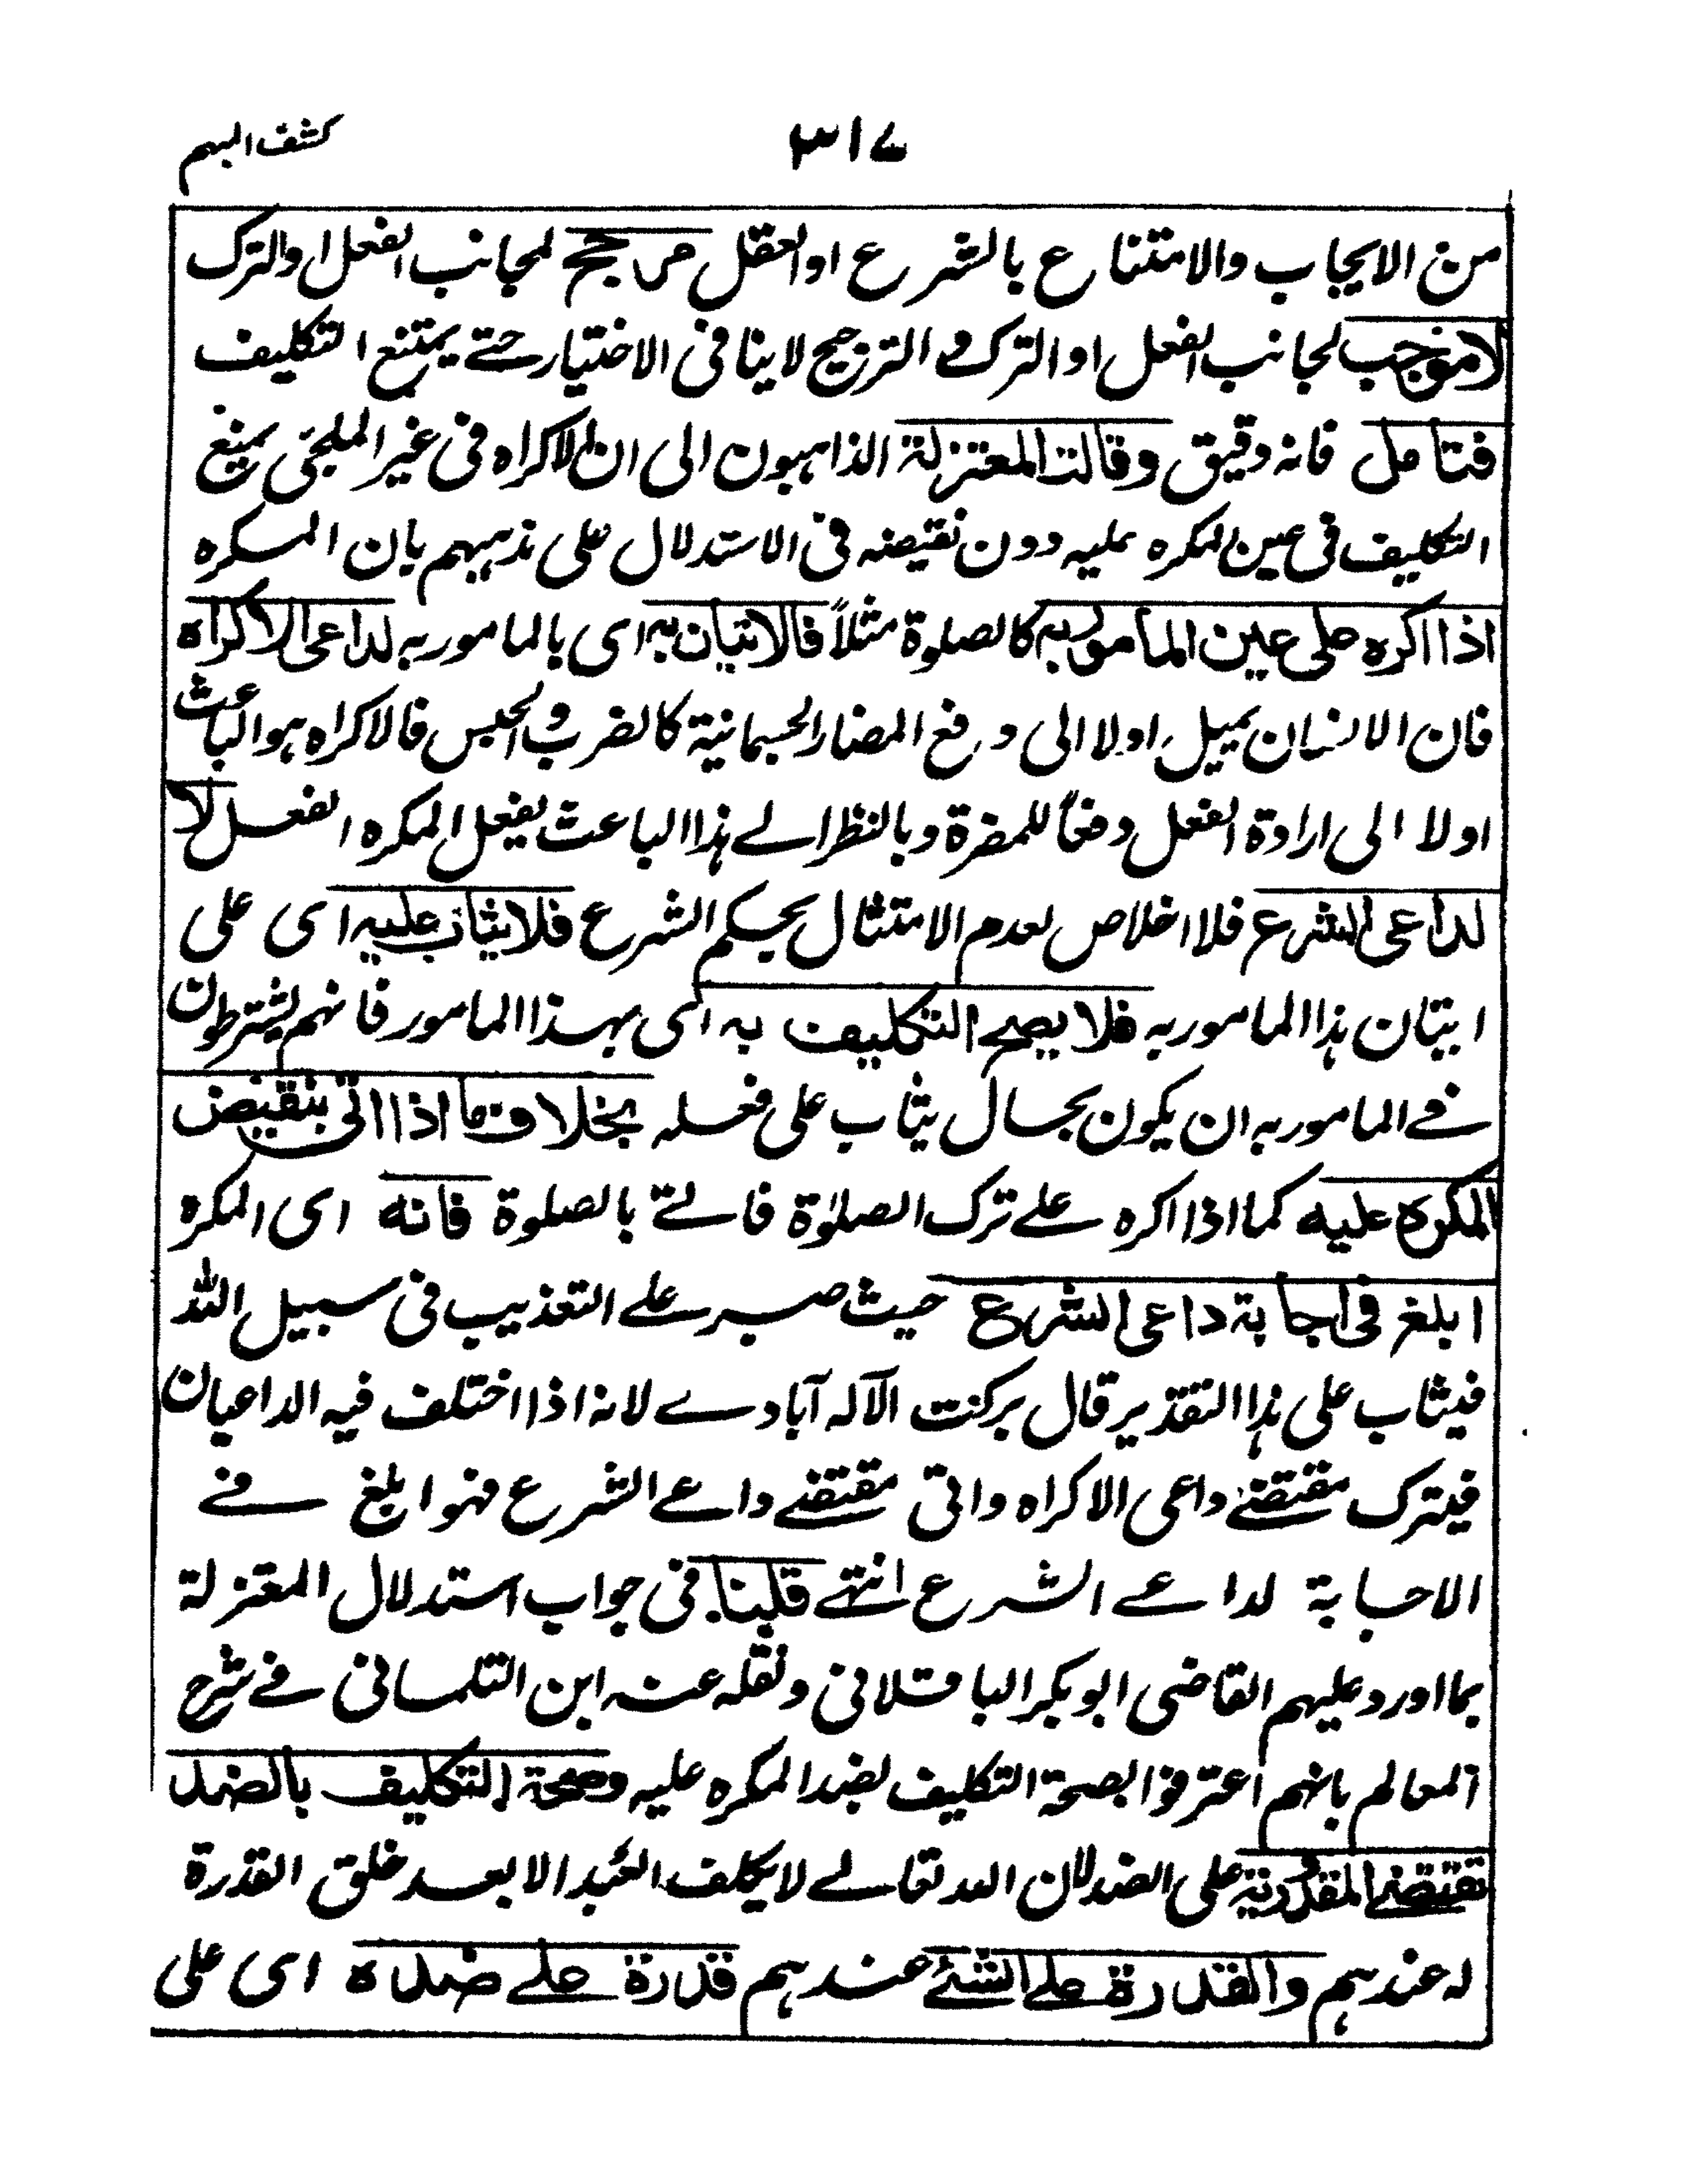 كشف المبهم
٣١٧
من الايجاب والامتناع بالشرع او العقل مرجح لجانب الفعل او الترك
لا موجب لجانب الفعل او الترك و الترجيح لا ينافى الاختيار حتے يمتنع التكليف
فتامل فانه دقيق وقالت المعتزلة الذاهبون الى ان الاكراه فى غير الملجئ يمنع
التكليف فى عين المكره عليه دون نقيضه فى الاستدلال على مذهبهم بان المكره
اذا اكره على عين المأمور به كالصلوة مثلاً فالاتيان به اى بالمامور به لداعى الاكراه
فان الانسان يميل اولا الى دفع المضار الجسمانية كالضرب و الحبس فالاكراه هو الباعث
اولا الى ارادة الفعل دفعاً للمضرة وبالنظر الے هذا الباعث يفعل المكره الفعل لا
لداعى الشرع فلا اخلاص لعدم الامتثال بحكم الشرع فلا يثاب عليه اى على
اتيان هذا المامور به فلا يصح التكليف به اى بهذا المامور فانهم يشترطون
فے المامور به ان يكون بحال يثاب على فعله بخلاف ما اذا اتى بنقيض
المكره عليه كما اذا اكره علے ترك الصلوٰة فاتے بالصلوة فانه اى المكره
ابلغ فى اجابة داعى الشرع حيث صبر علے التعذيب فى سبيل الله
فيثاب على هذا التقدير قال بركت الآله آبادے لانه اذا اختلف فيه الداعيان
فيترك مقتضے داعى الاكراه واتى مقتضے داعے الشرع فهو ابلغ فے
الاجابة لداعے الشرع انتهے قلنا فى جواب استدلال المعتزلة
بما اورد عليهم القاضى ابو بكر الباقلانى ونقله عنه ابن التلمسانى فے شرح
المعالم بانهم اعترفوا بصحة التكليف بضد المكره عليه وصحة التكليف بالضد
تقتضے المقدورية على الضد لان الله تعالے لا يكلف العبد الا بعد خلق القدرة
له عندهم والقدرة علے الشئے عندهم قدرة علے ضده اى على